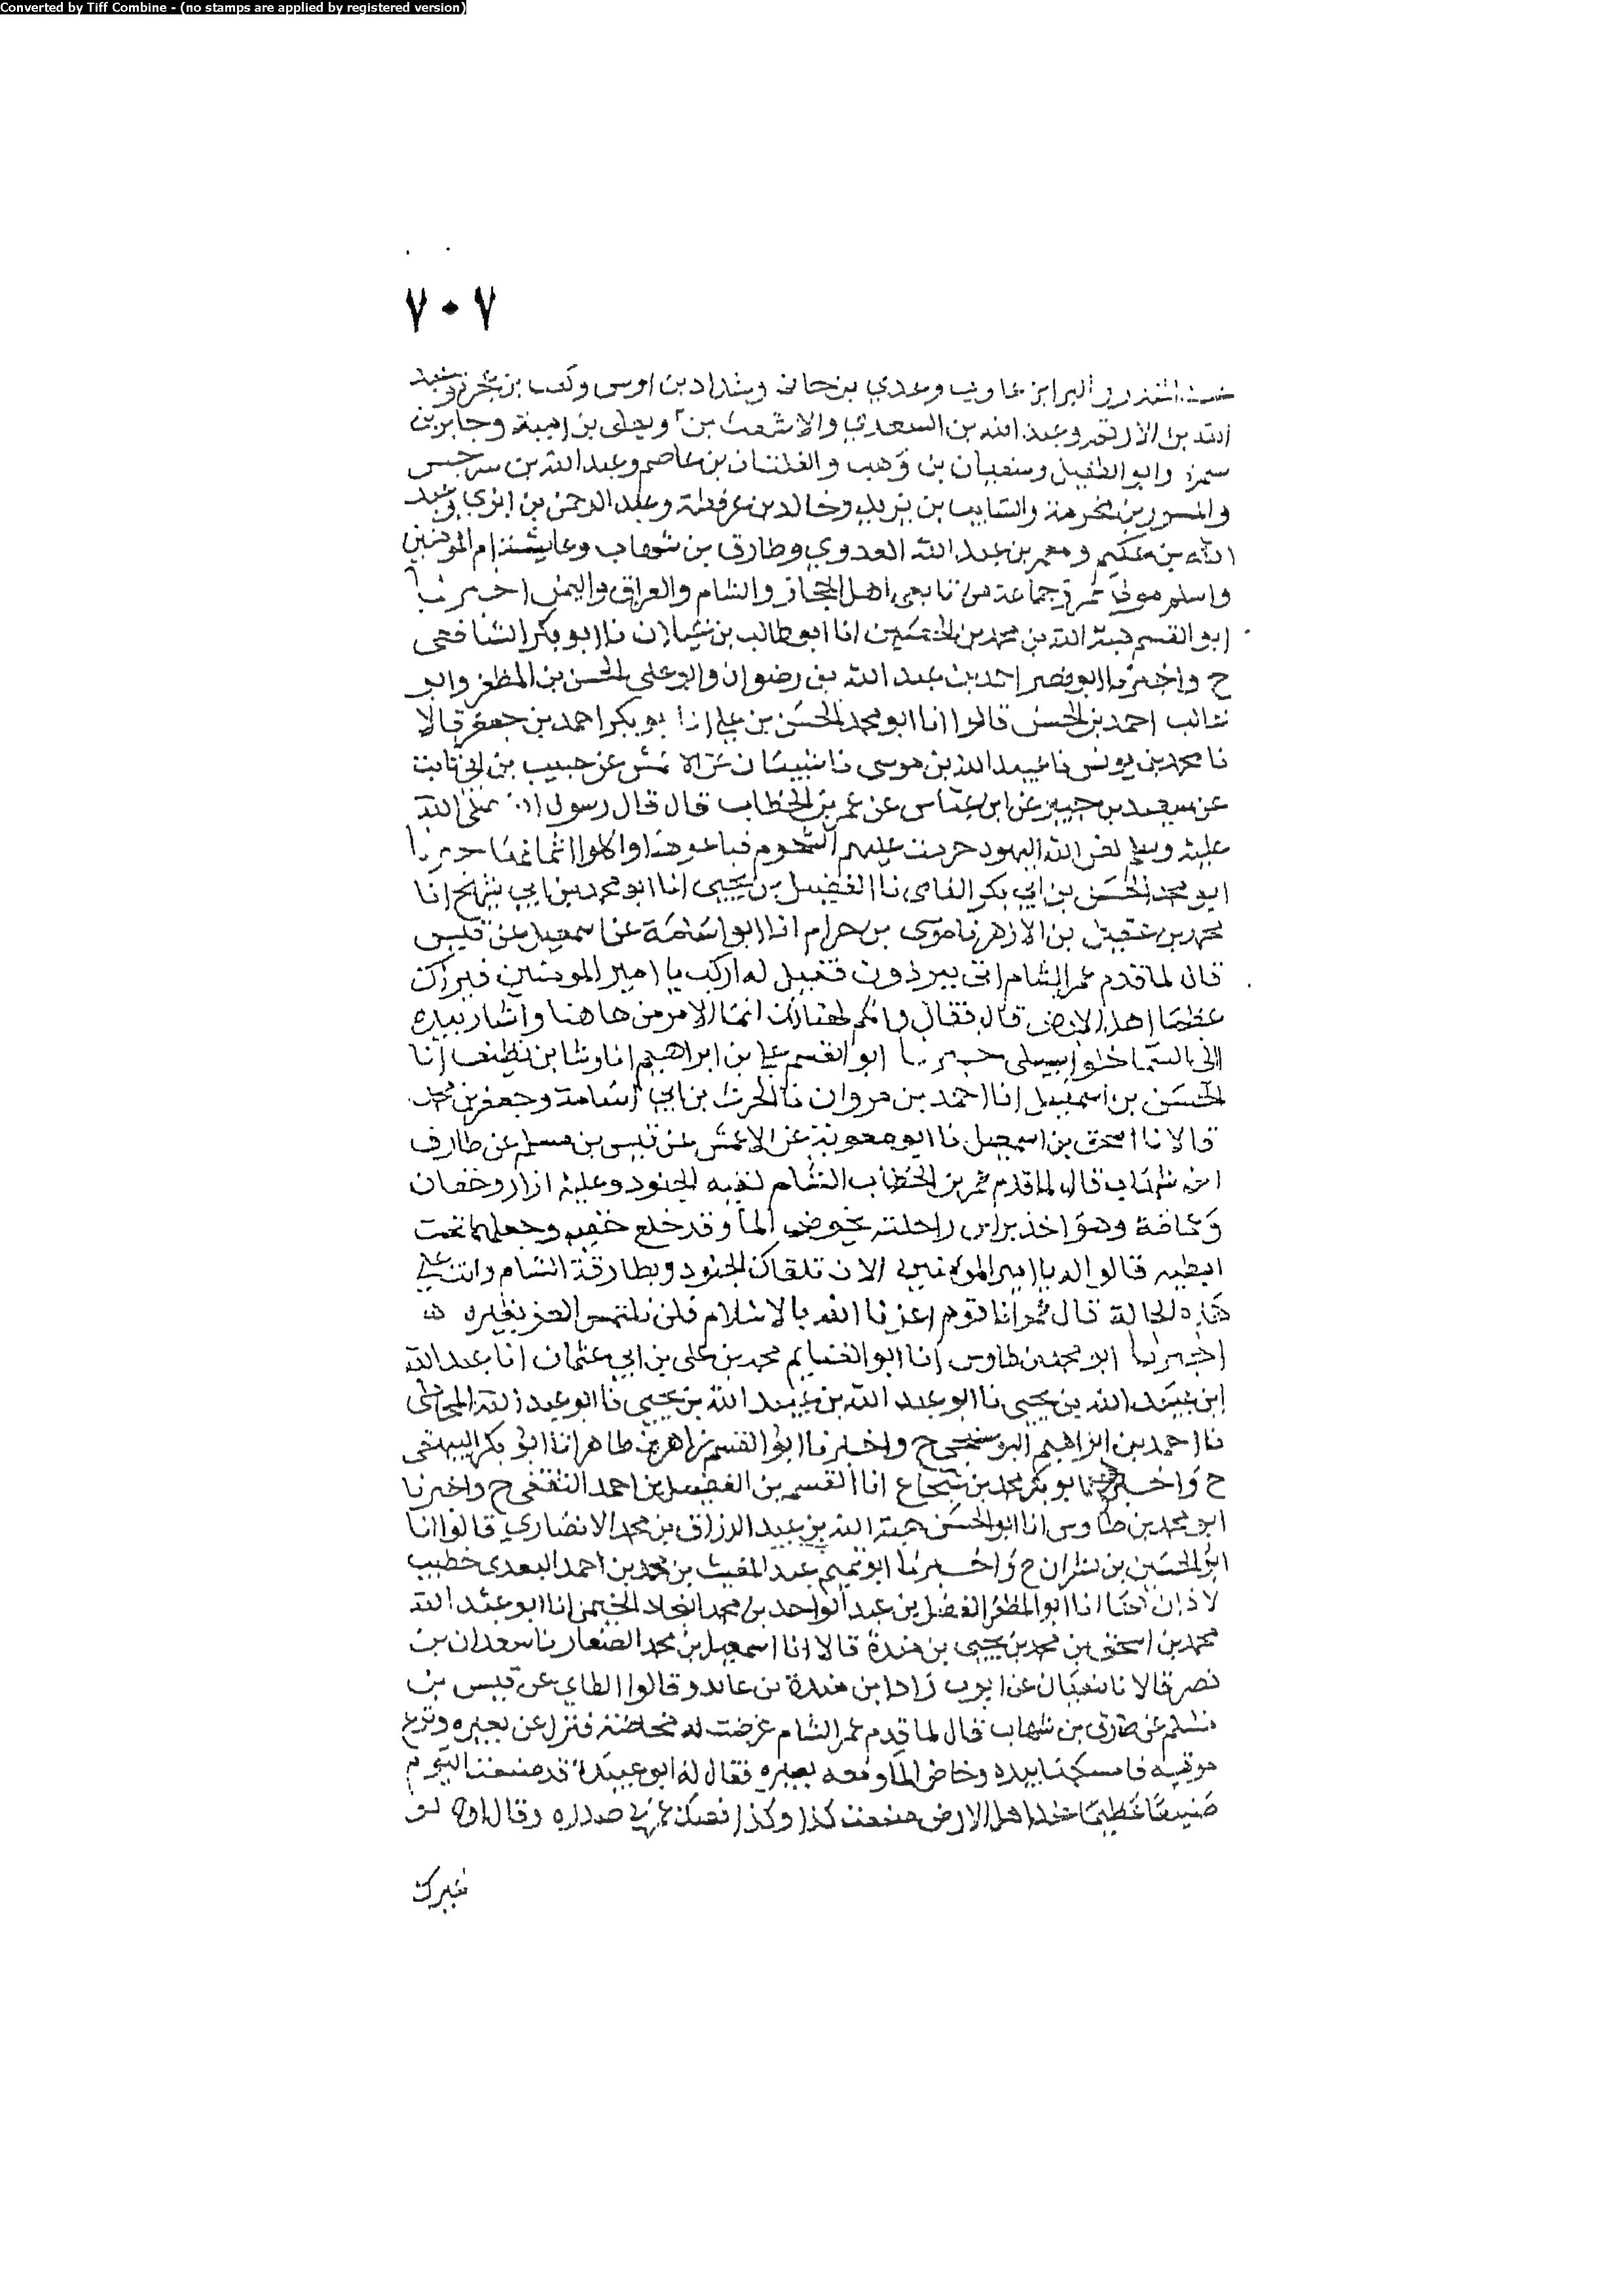 Converted by Tiff Combine - (no stamps are applied by registered version)
٧٠٧
البرا بن عازب وعدي بن حاتم وشداد بن اوس وكعب بن عجرة وعبد
الله بن الارقم وعبد الله بن السعدي والاشعث بن ويعلى بن امية وجابر بن
سمرة وابو الطفيل وسفيان بن وهب والفلتان بن عاصم وعبد الله بن سرجس
والمسور بن مخرمة والسايب بن يزيد وخالد بن عرفطة وعبد الرحمن بن ابزي وعبد
الله بن عكيم ومعمر بن عبد الله العدوي وطارق بن شهاب وعايشة ام المومنين
واسلم مولى عمر وجماعة من تابعي اهل الحجاز والشام والعراق واليمن اخبرنا
ابو القسم هبة الله بن محمد بن الحصين انا ابو طالب بن غيلان نا ابو بكر الشافعي
ح واخبرنا ابو نصر احمد بن عبد الله بن رضوان وابو علي الحسن بن المظفر وابو
غالب احمد بن الحسن قالوا انا ابو محمد الحسن بن علي انا ابو بكر احمد بن جعفر قالا
نا محمد بن يونس نا عبيد الله بن موسى نا شيبان عن الاعمش عن حبيب بن ابي ثابت
عن سعيد بن جبير عن ابن عباس عن عمر بن الخطاب قال قال رسول الله صلى الله
عليه وسلم لعن الله اليهود حرمت عليهم الشحوم فباعوها واكلوا اثمانها اخبرنا
ابو محمد الحسن بن ابي بكر انا الفضيل بن يحيى انا ابو محمد بن ابي شريح انا
محمد بن عقيل بن الازهر نا موسى بن حرام انا ابو اسامة عن اسمعيل عن قيس
قال لما قدم عمر الشام اتى ببرذون فقيل له اركب يا امير المومنين فيراك
عظما اهل الارض قال فقال وانكم لهنالك انما الامر من هاهنا واشار بيده
الى السما خلوا سبيلي اخبرنا ابو القسم علي بن ابراهيم انا رشا بن نظيف انا
الحسن بن اسمعيل انا احمد بن مروان نا الحرث بن ابي اسامة وجعفر بن محمد
قالا نا اسحق بن اسمعيل نا ابو معوية عن الاعمش عن قيس بن مسلم عن طارق
ابن شهاب قال لما قدم عمر بن الخطاب الشام لقيه الجنود وعليه ازار وخفان
وعمامة وهو اخذ براس راحلته يخوض الما وقد خلع خفيه وجعلهما تحت
ابطيه قالوا له يا امير المومنين الان تلقاك الجنود وبطارقة الشام وانت على
هذه الحالة قال عمر انا قوم اعزنا الله بالاسلام فلن نلتمس العز بغيره
اخبرنا ابو محمد بن طاوس انا ابو الغنايم محمد بن علي بن ابي عثمان انا عبد الله
ابن عبيد الله بن يحيى نا ابو عبد الله بن عبيد الله بن يحيى نا ابو عبد الله المحاملي
نا احمد بن ابراهيم البوسنجي ح واخبرنا ابو القسم زاهر بن طاهر انا ابو بكر البيهقي
ح واخبرنا ابو بكر محمد بن شجاع انا القسم بن الفضل بن احمد الثقفي ح واخبرنا
ابو محمد بن طاوس انا ابو الحسن هبة الله بن عبد الرزاق بن محمد الانصاري قالوا انا
ابو الحسين بن بشران ح واخبرنا ابو تميم عبد المغيث بن محمد بن احمد خطيب
انا ابو المظفر الفضل بن عبد الواحد بن محمد انا ابو عبد الله
محمد بن اسحق بن محمد بن يحيى بن مندة قالا انا اسمعيل بن محمد الصفار نا سعدان بن
نصر قالا نا سفيان عن ايوب زاد ابن مندة بن عايد وقالوا الطاي عن قيس بن
مسلم عن طارق بن شهاب قال لما قدم عمر الشام عرضت له مخاضة فنزل عن بعيره ونزع
موقيه فامسكهما بيده وخاض الما ومعه بعيره فقال له ابو عبيدة قد صنعت اليوم
صنيعا عظيما عند اهل الارض صنعت كذا وكذا فصك عمر في صدره وقال اوه لو
غيرك